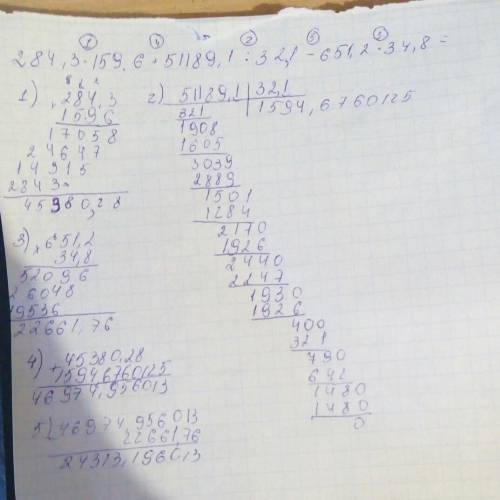 ① ④ ② ⑤ ③
284,3·159,6+51189,1:32,1-651,2·34,8=
1) 284,3
1596
17058
24647
14315
2843
45380,28
2) 51189,1 32,1
1594,6760125
321
1908
1605
3039
2889
1501
1284
2170
1926
2440
2247
1930
1926
400
321
790
642
1480
1480
0
3) ×651,2
34,8
52096
26048
19536
22661,76
4) +45380,28
1594,6760125
46974,956013
5) 46974,956013
22661,76
24313,196013